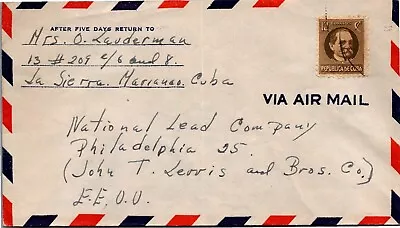 AFTER FIVE DAYS RETURN TO
Mrs. O. Lauderman
13 #209 e/6 and 8.
La Sierra. Marianao. Cuba
REPUBLICA DE CUBA
VIA AIR MAIL
National Lead Company
Philadelphia 25.
(John T. Lewis and Bros. Co.)
E.E.U.U.